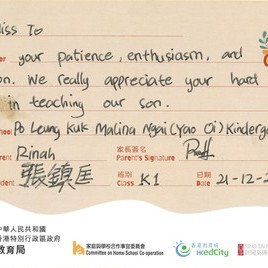 iss To
your patience, enthusiasm, and
on. We really appreciate your hard
in teaching our son.
Po Leung Kuk Malina Ngai (Yao Oi) Kinderga
Rinah
家長簽名
Parent's Signature
張鎮匡
班別
Class K1
日期
Date 21-12-2
中華人民共和國
香港特別行政區政府
教育局
家庭與學校合作事宜委員會
Committee on Home-School Co-operation
香港教育城
HKedCity